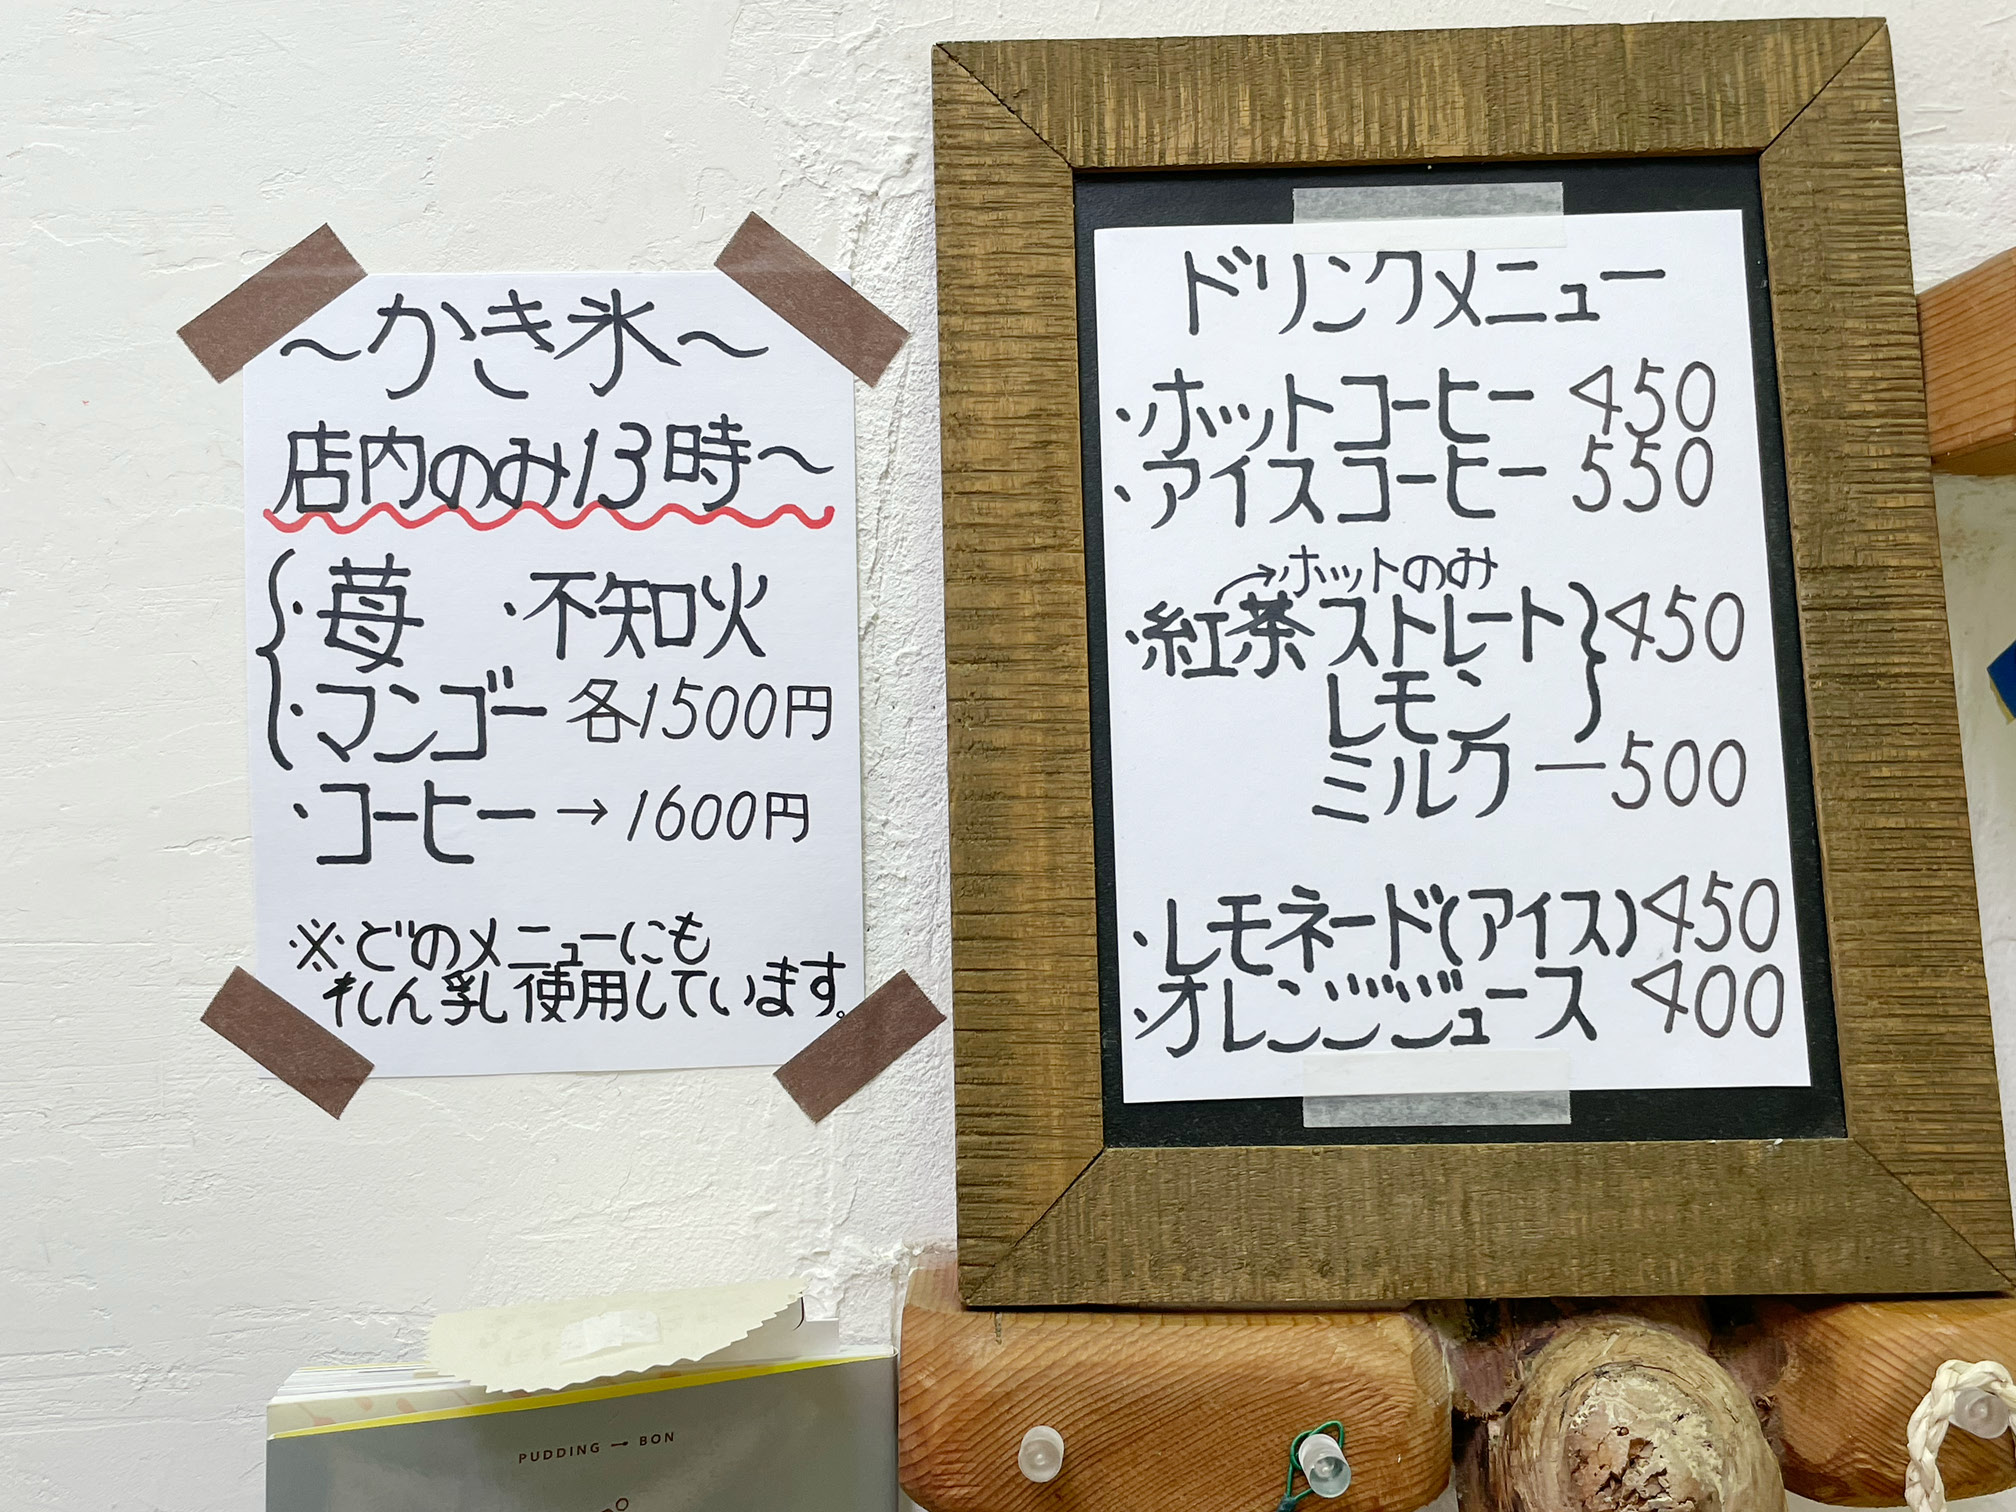 ～かき氷～
店内のみ13時～
・苺 ・不知火
・マンゴー 各1500円
・コーヒー→1600円
※どのメニューにも
れん乳使用しています。
ドリンクメニュー
・ホットコーヒー 450
・アイスコーヒー 550
→ホットのみ
・紅茶 ストレート 450
レモン
ミルク ー500
・レモネード(アイス) 450
・オレンジジュース 400
PUDDING BON